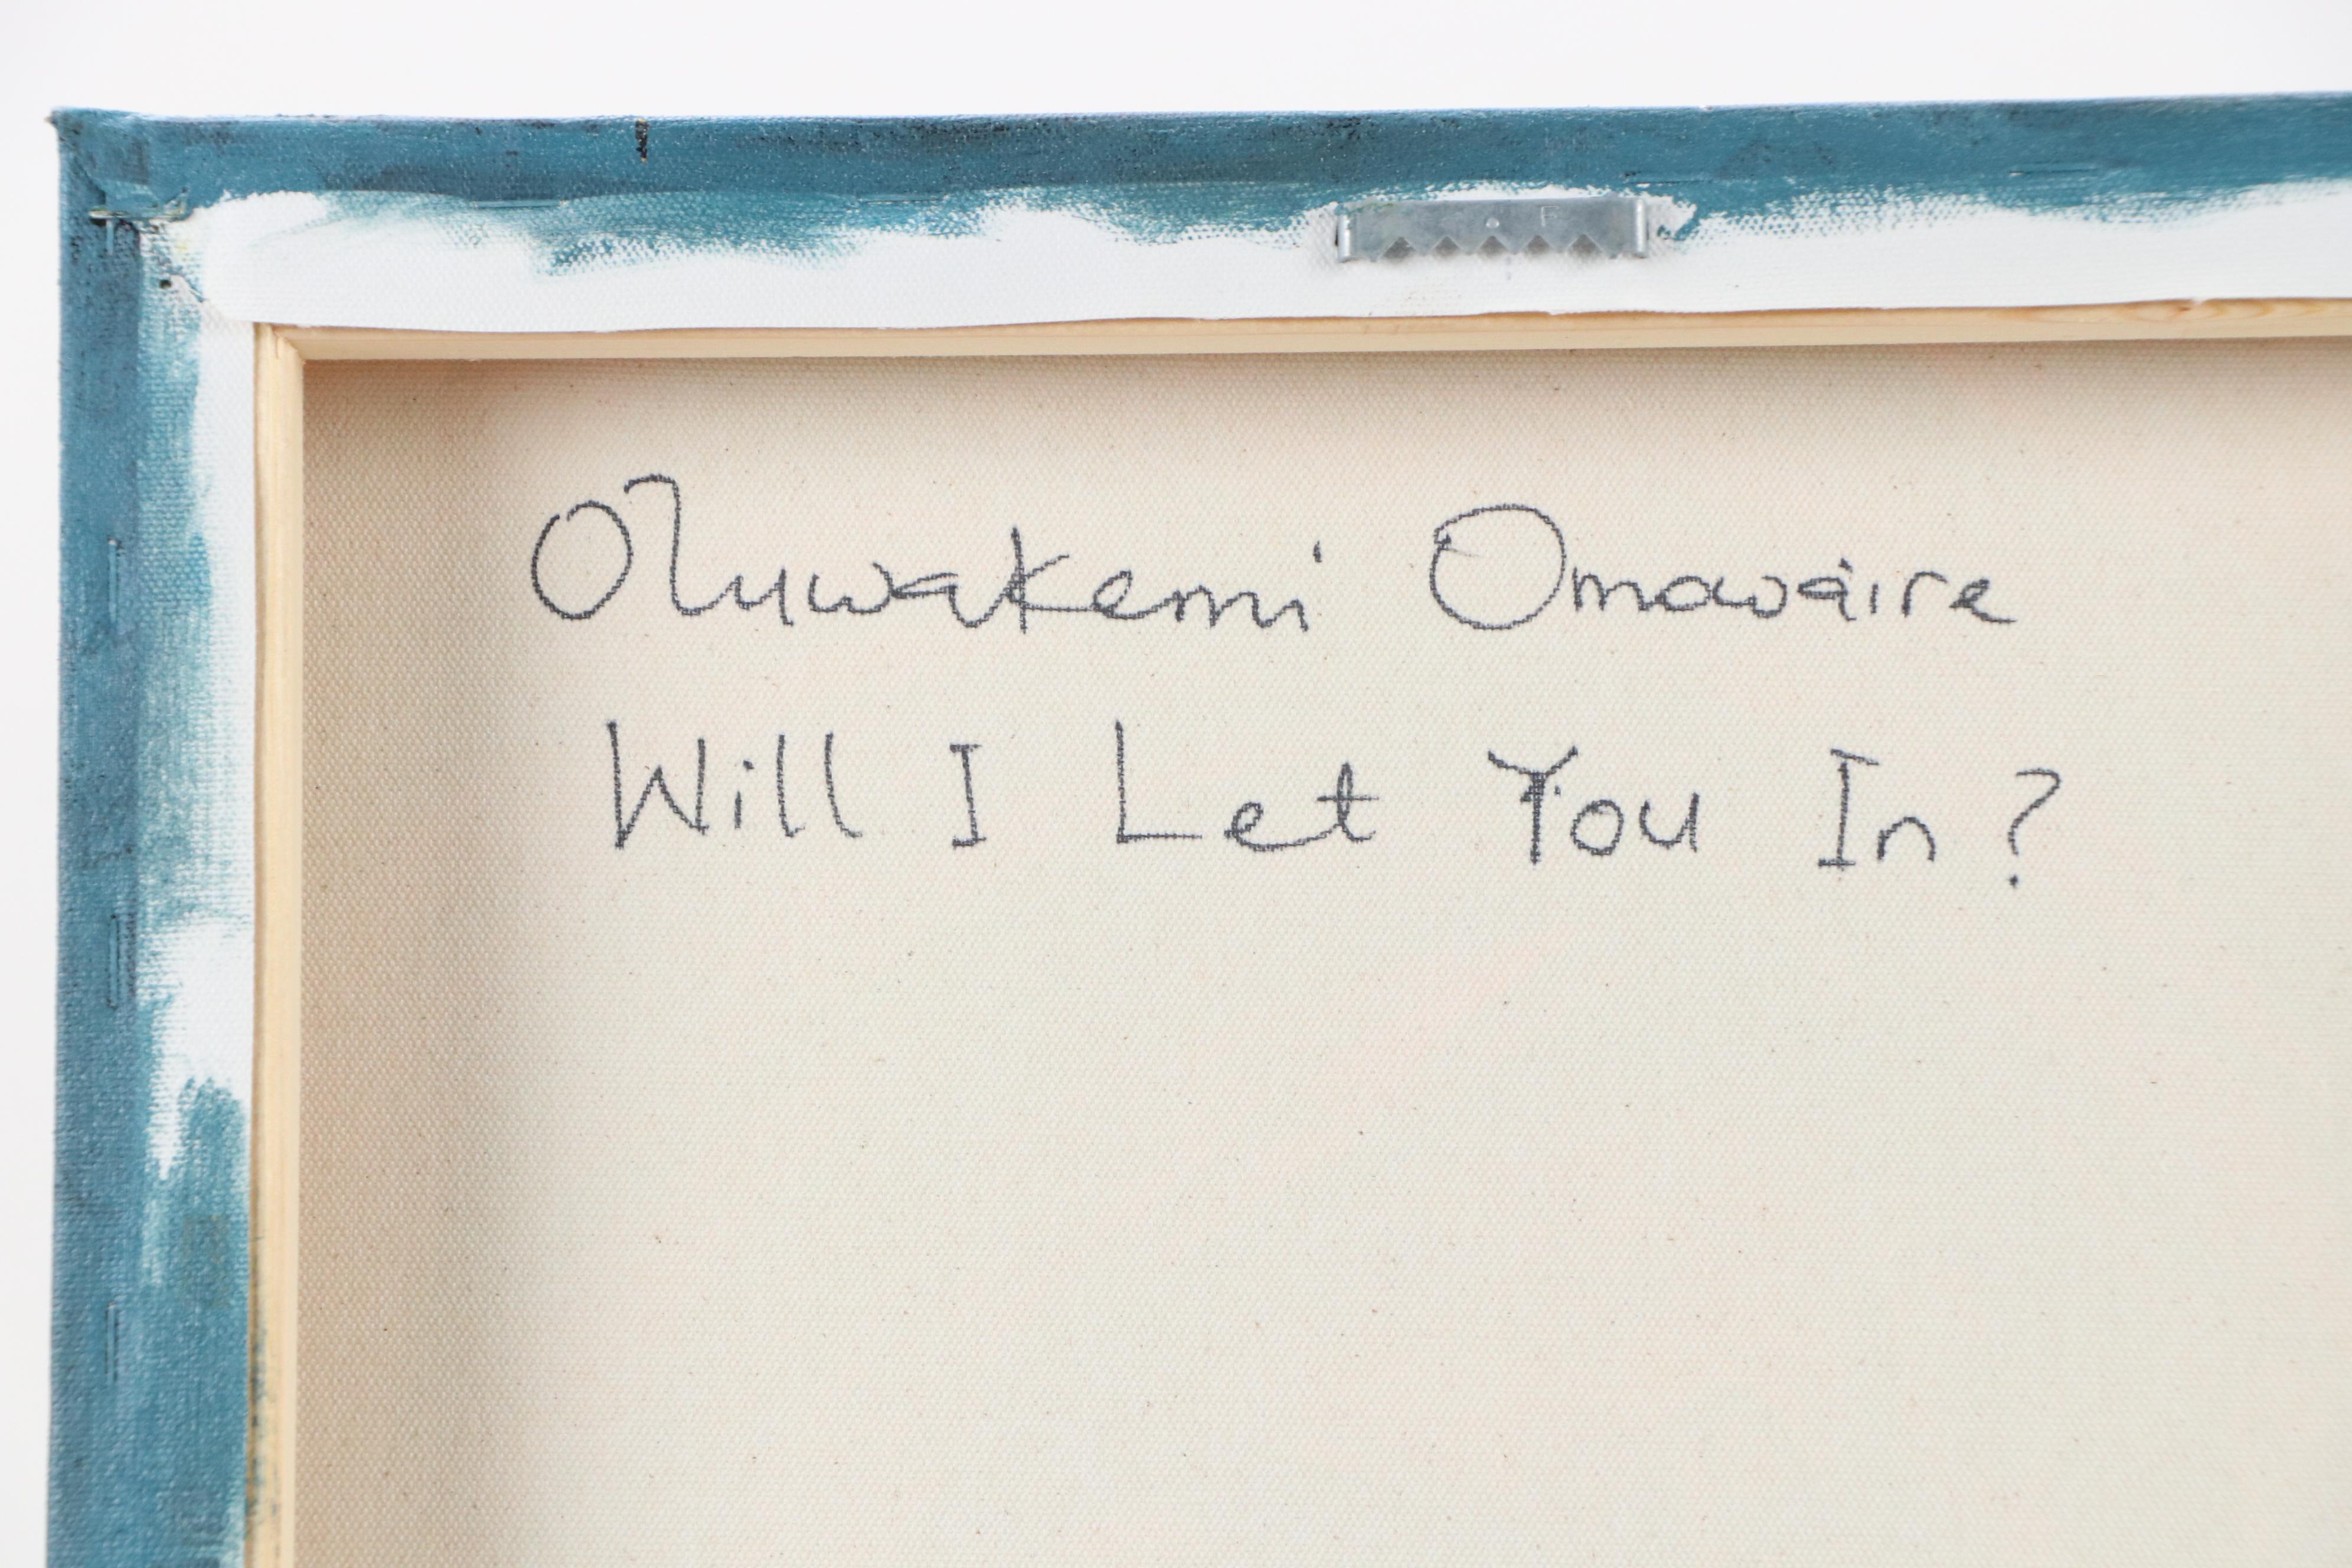 Oluwakemi Omowaire
Will I Let You In?